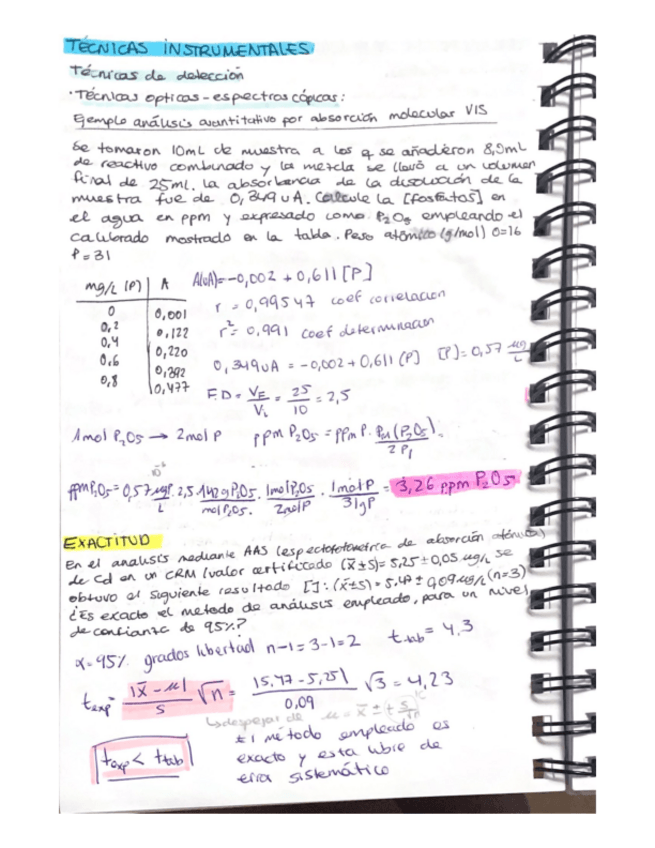 TÉCNICAS INSTRUMENTALES
Técnicas de detección
· Técnicas opticas - espectroscópicas:
Ejemplo análisis cuantitativo por absorción molecular VIS
Se tomaron 10mL de muestra a los q se añadieron 8,0mL
de reactivo combinado y la mezcla se llevó a un volumen
final de 25ml. La absorbancia de la disolución de la
muestra fue de 0,349 uA. Calcule la [fosfatos] en
el agua en ppm y expresado como P2O5 empleando el
calibrado mostrado en la tabla. Peso atómico (g/mol) O=16
P=31
mg/L (P) | A
0 0,001
0,2 0,122
0,4 0,220
0,6 0,392
0,8 0,477
A(uA)= -0,002 + 0,611 [P]
r = 0,99547 coef correlacion
r² = 0,991 coef determinacion
0,349uA = -0,002 + 0,611 [P] [P]= 0,57 µg/L
FD = VF/Vi = 25/10 = 2,5
1 mol P2O5 → 2 mol P ppm P2O5 = ppm P · PM (P2O5)/2 P =
ppm P2O5 = 0,57 µgP/L · 2,5 · 142 g P2O5/mol P2O5 · 1mol P2O5/2mol P · 1 mol P/31gP = 3,26 ppm P2O5
EXACTITUD
En el analisis mediante AAS (espectofotometria de absorción atómica)
de Cd en un CRM (valor certificado (x̄±s)= 5,25 ± 0,05 µg/L se
obtuvo el siguiente resultado []: (x̄±s) = 5,47 ± 0,09 µg/L (n=3)
¿Es exacto el metodo de análisis empleado, para un nivel
de confianza de 95%?
α=95% grados libertad n-1=3-1=2 ttab = 4,3
texp = |x̄ - µ|/s √n = |5,47 - 5,25|/0,09 √3 = 4,23
↳ despejar de µ = x̄ ± t s/√n
texp < ttab
El método empleado es
exacto y esta libre de
error sistemático